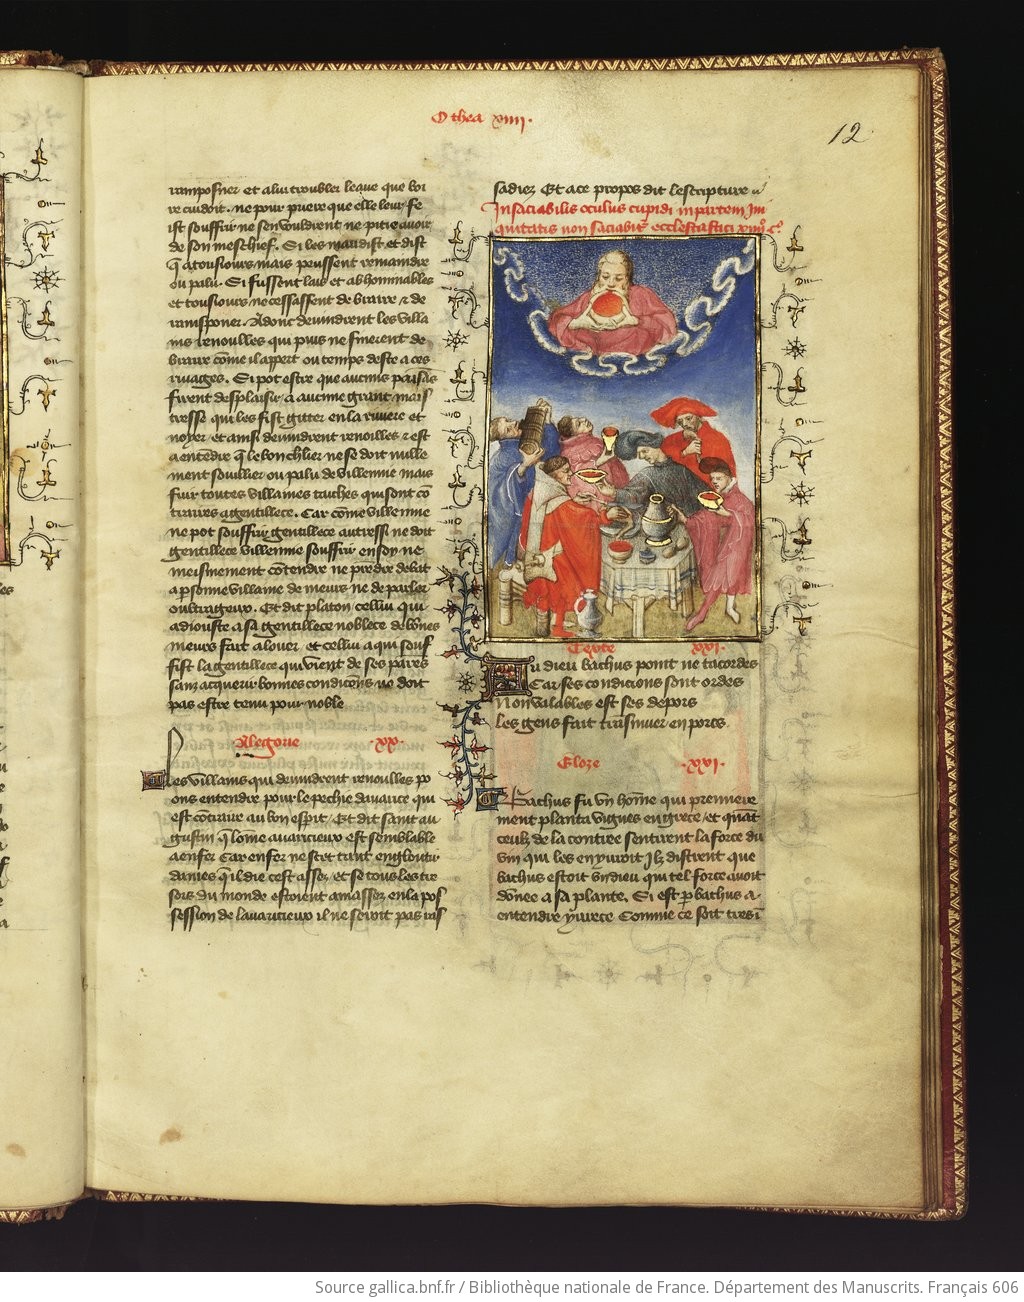 Othea xiiii.
12
ramposner et a lui troubler leaue que boi
re cuidoit. ne pour priere que elle leur fe
ist souffrir ne sen vouldrent ne pitie avoir
de son meschief. Si les maudist et dist
q̃ a tousiours mais peussent remaindre
ou palu. Si fussent lais et abhominables
et tousiours ne cessassent de braire & de
ramposner. Adonc devindrent les villa
ins renoulles qui puis ne finerent de
braire cõme il appert ou temps deste a ces
rivages. Si pot estre que aucuns paisãs
firent desplaisir a aucune grant mais
tresse qui les fist gitter en la riviere et
noyer et ainsi devindrent renoilles & est
a entendre q̃ le bon chlier ne se doit nulle
ment souillier ou palu de villennie mais
fuir toutes villaines taiches qui sont cõ
traires a gentillece. Car cõme villennie
ne pot souffrir gentillece autressi ne doit
gentillece villennie souffrir en soy ne
meismement cõtendre ne prẽdre debat
a p̃sonne villaine de meurs ne de parler
oultrageux. Et dit platon cellui qui
adiouste a sa gentillece noblece de bõnes
meurs fait a louer et cellui a qui souf
fist la gentillece qui vient de ses parẽs
sans acquerir bonnes condiciõns ne doit
pas estre tenu pour noble
Alegorie .xx.
Les villains qui devindrent renoulles po
ons entendre pour le pechie davarice qui
est cõtraire au bon esp̃it. Et dit saint au
gustin q̃ lome avaricieux est semblable
a enfer Car enfer ne scet tant engloutir
dames qil die cest assez, et se tous les tre
sors du monde estoient amassez en la pos
session de lavaricieux il ne seroit pas ras
sadiez Et a ce propos dit lescripture
Insaciabilis oculus cupidi in partem in
iquitatis non saciabit. ecclesiastici xiiii cº
Texte .xxi.
Au dieu bachus point ne tacordes
Car ses condicions sont ordes
Non vailables est ses depors
Les gens fait trãsmuer en porcs
Gloze .xxi.
Bachus fu un hõme qui premiere
ment planta vignes en grece, et quãt
ceulx de la contree sentirent la force du
vin qui les enyvroit ilz distrent que
bachus estoit un dieu qui tel force avoit
dõnee a sa plante. Si est p̱ bachus a
entendre yvrece Comme ce soit tres ĩ
Source gallica.bnf.fr / Bibliothèque nationale de France. Département des Manuscrits. Français 606